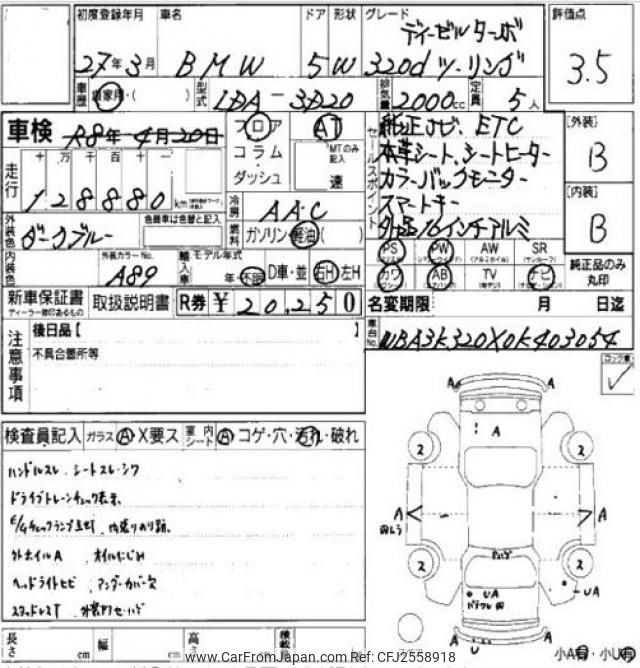 初度登録年月 車名 ドア 形状 グレード 評価点
27年3月 BMW 5W ディーゼルターボ 320d ツーリング 3.5
車歴 自家用・( ) 型式 LDA-3D20 排気量 2000cc 定員 5人
車検 R8年4月20日 フロア AT
コラム MTのみ記入
ダッシュ 速
走行 十 万 千 百 十 一
128880 km
セールスポイント 純正ナビ、ETC
本革シート、シートヒーター
カラーバックモニター
スマートキー
外品16インチアルミ
[外装] B
[内装] B
冷房 AAC
外装色 ダークブルー 色替車は色替と記入
燃料 ガソリン・軽油( )
内装色 外装カラーNo. A89
輸入車 モデル年式 年・不明 D車・並 右H・左H
PS PW AW SR
カワ AB TV ナビ
純正品のみ丸印
新車保証書 取扱説明書 R券 ¥20,250
ディーラー捺印あるもの
名変期限 月 日迄
車台No. WBA3K320X0K403054
注意事項 後日品【 】
不具合箇所等
ロック車
検査員記入 ガラス A X要ス 室内シート A コゲ・穴・汚れ・破れ
ハンドルスレ、シートスレ・シワ
ドライブトレーンチェック表示
E/gチェックランプ点灯
外ホイルA オイルにじみ
ヘッドライトヒビ アンダーカバー欠
A A
A
2 2
A A
2 2
UA UA
A U A
長さ cm 幅 cm 高さ cm 積載
小A有・小U有
www.CarFromJapan.com Ref: CFJ2558918